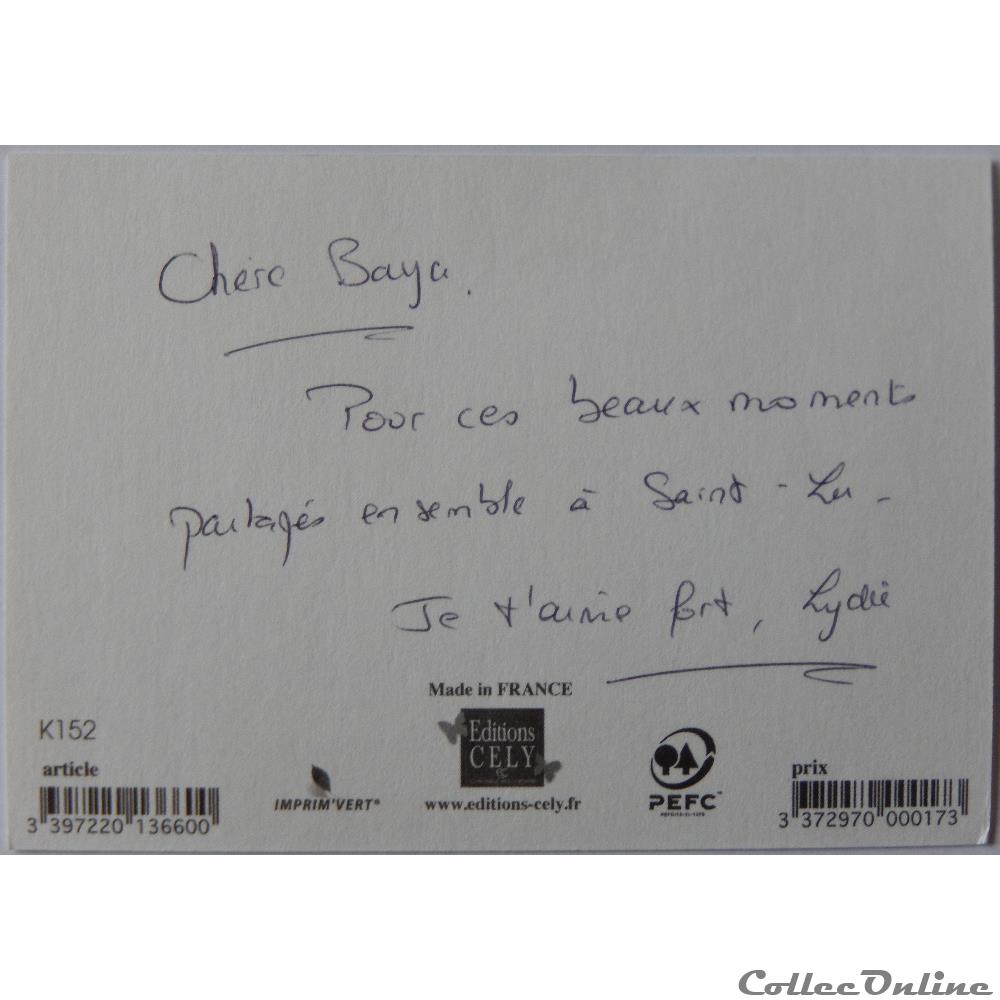 Chère Baya.
Pour ces beaux moments
partagés ensemble à Saint-Lu.
Je t'aime fort, Lydie
Made in FRANCE
K152
Editions
CELY
article
prix
IMPRIM'VERT®
www.editions-cely.fr
PEFC™
3 397220 136600
3 372970 000173
CollecOnline